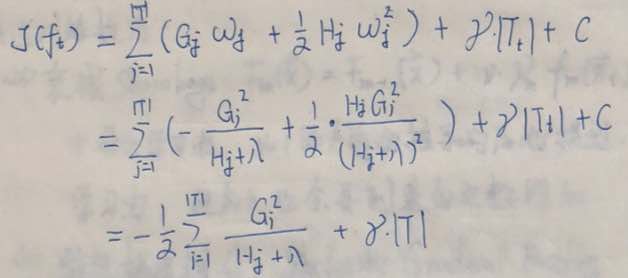 J(f_t) = \sum_{j=1}^{|T|} (G_j w_j + \frac{1}{2} H_j w_j^2) + γ·|T_t| + C
= \sum_{j=1}^{|T|} (-\frac{G_j^2}{H_j+λ} + \frac{1}{2} · \frac{H_j G_j^2}{(H_j+λ)^2}) + γ|T_t| + C
= -\frac{1}{2} \sum_{j=1}^{|T|} \frac{G_j^2}{H_j+λ} + γ·|T|